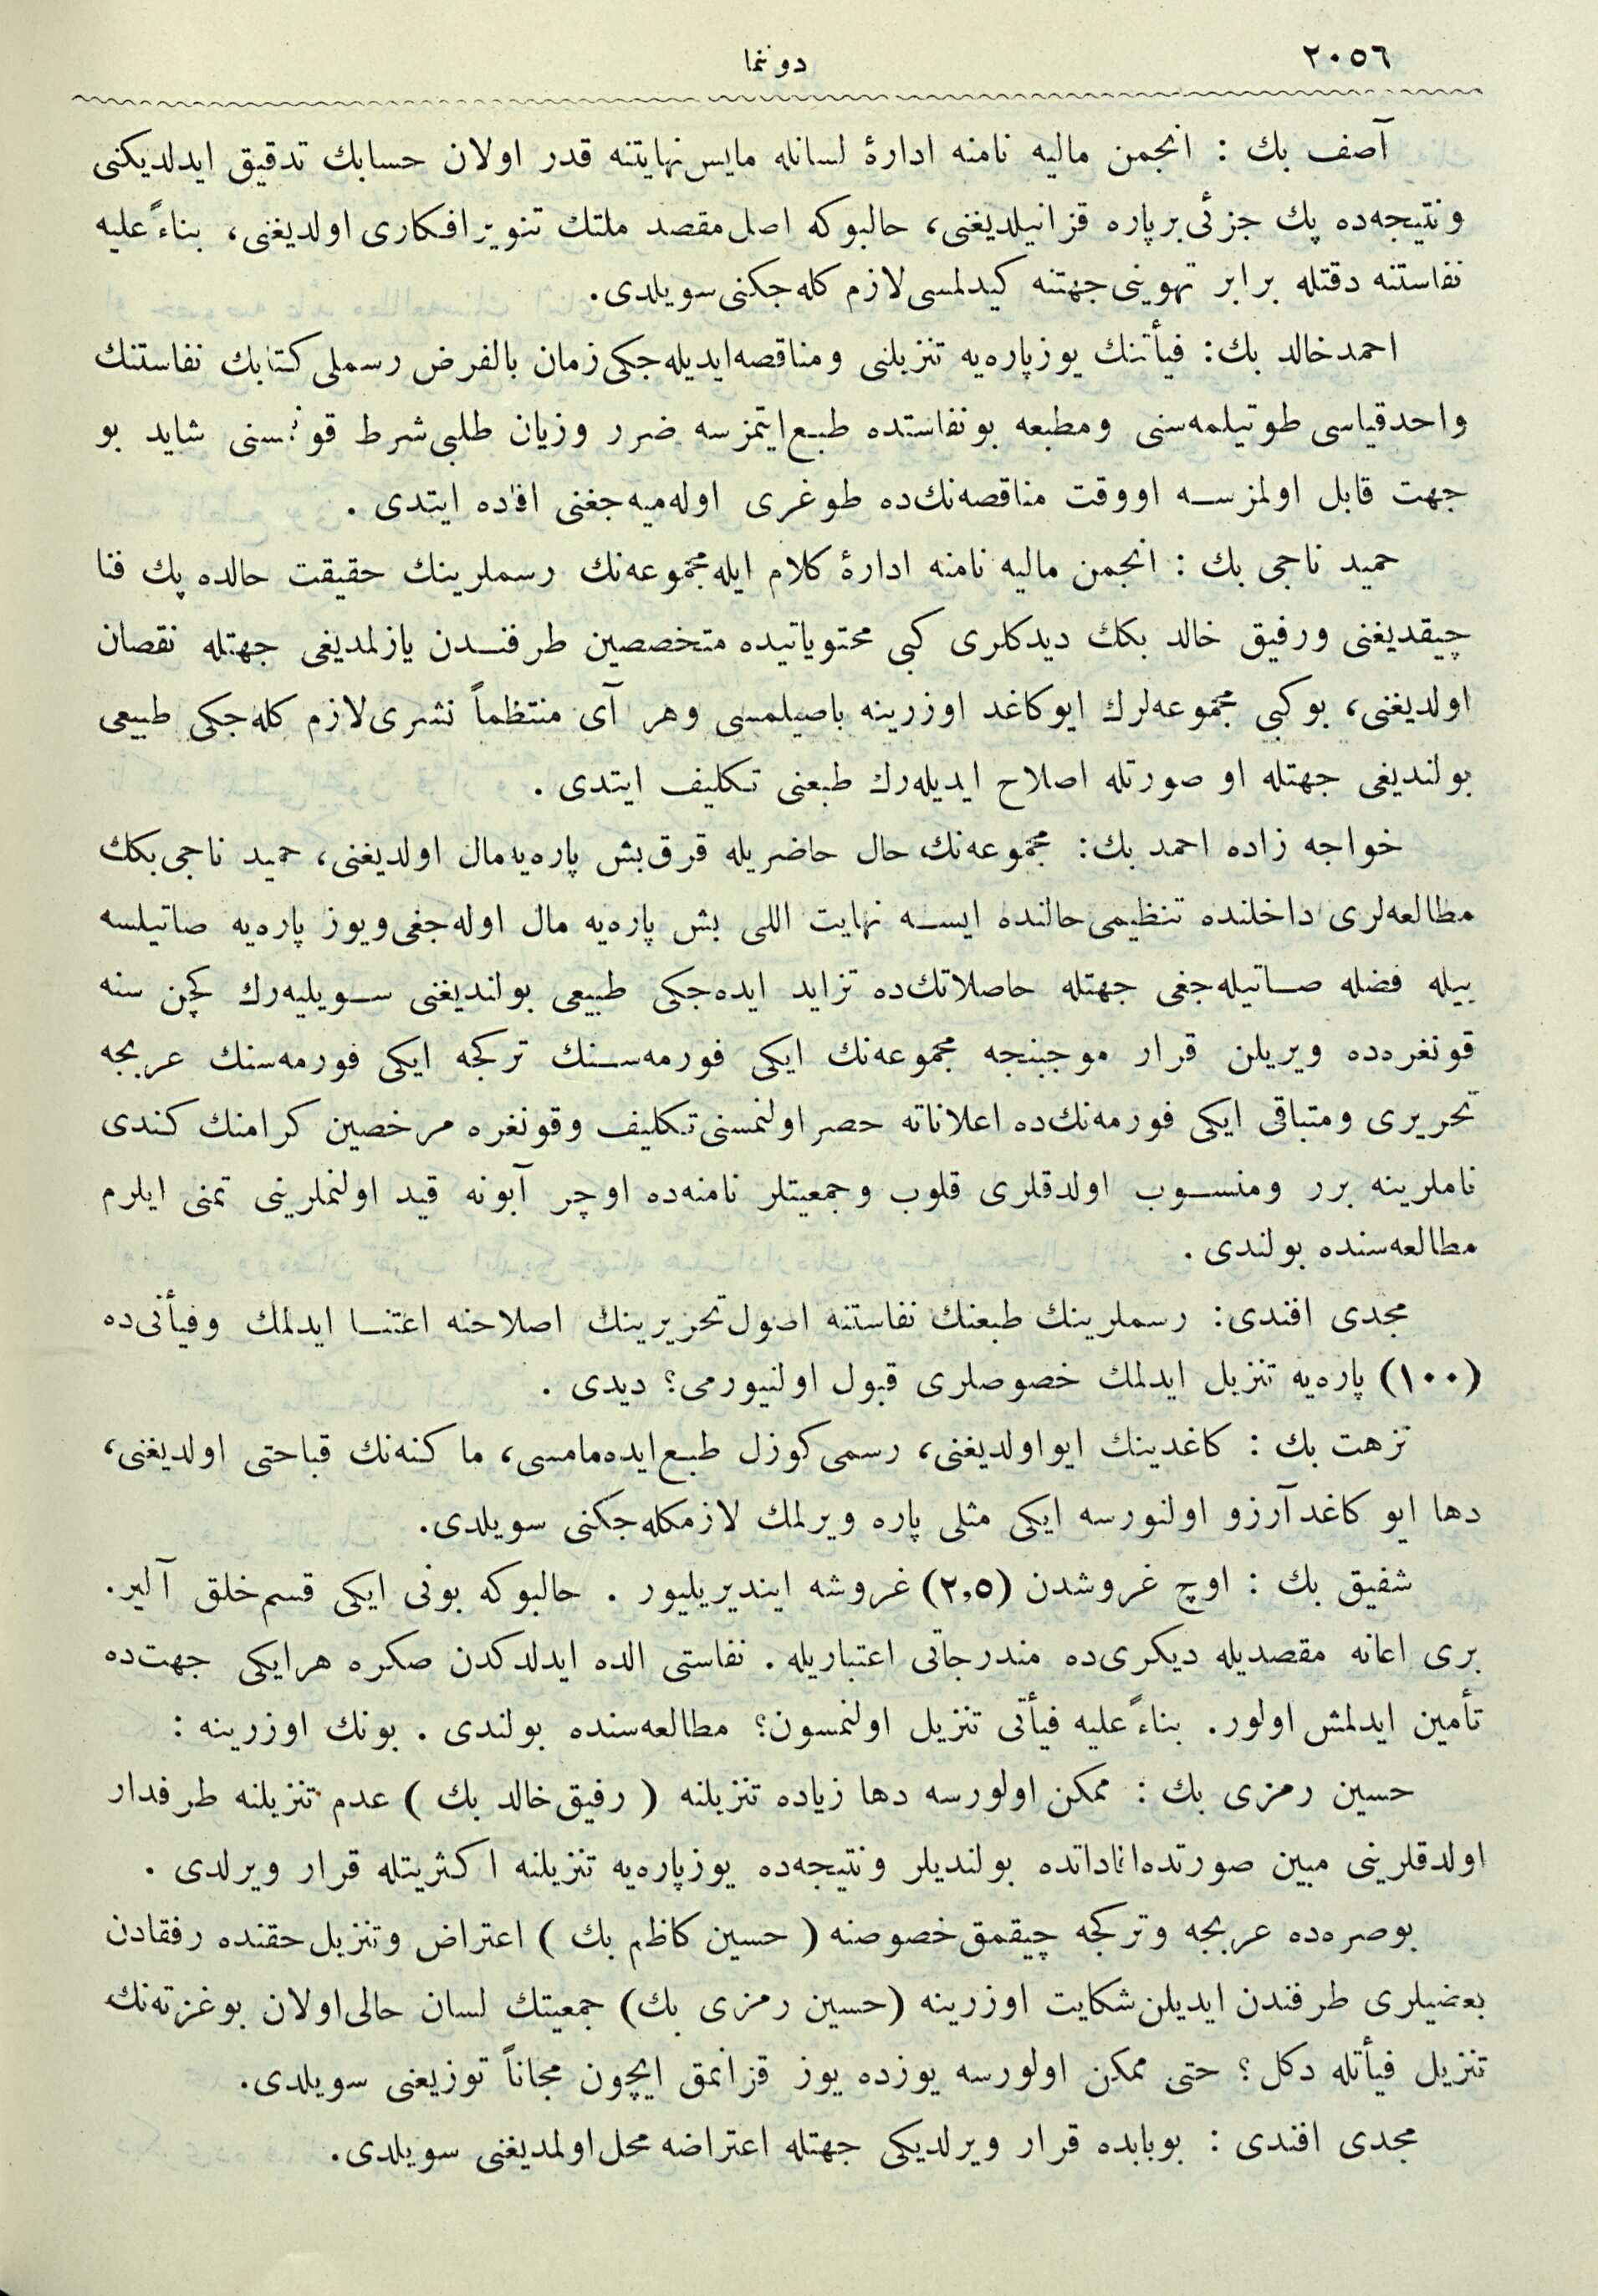 ٢٠٥٦
دوننما
آصف بك : انجمن ماليه نامنه ادارۀ لسانله مايس نهايتنه قدر اولان حسابك تدقيق ايدلديكنى
ونتيجه‌ده پك جزئى برپاره قزانيلديغنى، حالبوكه اصل مقصد ملتك تنوير افكارى اولديغنى، بناءً عليه
نفاستنه دقتله برابر تهوينى جهتنه كيدلمسى لازم كله‌جكنى سويلدى.
احمد خالد بك: فيأتنك يوز پاره‌يه تنزيلنى ومناقصه ايديله‌جكى زمان بالفرض رسملى كتابك نفاستنك
واحد قياسى طوتيلمه‌سنى ومطبعه بو نفاستده طبع ايتمزسه ضرر وزيان طلبى شرط قونمسنى شايد بو
جهت قابل اولمزسه او وقت مناقصه‌نك‌ده طوغرى اوله‌ميه‌جغنى افاده ايتدى .
حميد ناجى بك : انجمن ماليه نامنه ادارۀ كلام ايله مجموعه‌نك رسملرينك حقيقت حالده پك فنا
چيقديغنى ورفيق خالد بكك ديدكلرى كبى محتوياتيده متخصصين طرفندن يازلمديغى جهتله نقصان
اولديغنى، بوكبى مجموعه‌لرك ايو كاغد اوزرينه باصيلمسى وهر آى منتظماً نشرى لازم كله‌جكى طبيعى
بولنديغى جهتله او صورتله اصلاح ايديله‌رك طبعنى تكليف ايتدى .
خواجه زاده احمد بك: مجموعه‌نك حال حاضريله قرق بش پاره‌يه مال اولديغنى، حميد ناجى بكك
مطالعه‌لرى داخلنده تنظيمى حالنده ايسه نهايت اللى بش پاره‌يه مال اوله‌جغى ويوز پاره‌يه صاتيلسه
بيله فضله صاتيله‌جغى جهتله حاصلاتك‌ده تزايد ايده‌جكى طبيعى بولنديغنى سويليه‌رك كچن سنه
قونغره‌ده ويريلن قرار موجبنجه مجموعه‌نك ايكى فورمه‌سنك تركجه ايكى فورمه‌سنك عربجه
تحريرى ومتباقى ايكى فورمه‌نك‌ده اعلاناته حصر اولنمسنى تكليف وقونغره مرخصين كرامنك كندى
ناملرينه برر ومنسوب اولدقلرى قلوب وجمعيتلر نامنه‌ده اوچر آبونه قيد اولنملرينى تمنى ايلرم
مطالعه‌سنده بولندى .
مجدى افندى: رسملرينك طبعنك نفاستنه اصول تحريرينك اصلاحنه اعتنا ايدلمك وفيأتى‌ده
(١٠٠) پاره‌يه تنزيل ايدلمك خصوصلرى قبول اولنيورمى؟ ديدى .
نزهت بك : كاغدينك ايو اولديغنى، رسمى كوزل طبع ايده‌مامسى، ماكنه‌نك قباحتى اولديغنى،
دها ايو كاغد آرزو اولنورسه ايكى مثلى پاره ويرلمك لازمكله‌جكنى سويلدى.
شفيق بك : اوچ غروشدن (٢,٥) غروشه اينديريليور . حالبوكه بونى ايكى قسم خلق آلير.
برى اعانه مقصديله ديكرى‌ده مندرجاتى اعتباريله . نفاستى الده ايدلدكدن صكره هر ايكى جهت‌ده
تأمين ايدلمش اولور. بناءً عليه فيأتى تنزيل اولنمسون؟ مطالعه‌سنده بولندى . بونك اوزرينه :
حسين رمزى بك : ممكن اولورسه دها زياده تنزيلنه ( رفيق خالد بك ) عدم تنزيلنه طرفدار
اولدقلرينى مبين صورتده اناداتده بولنديلر ونتيجه‌ده يوز پاره‌يه تنزيلنه اكثريتله قرار ويرلدى .
بوصره‌ده عربجه وتركجه چيقمق خصوصنه ( حسين كاظم بك ) اعتراض وتنزيل حقنده رفقادن
بعضيلرى طرفندن ايديلن شكايت اوزرينه (حسين رمزى بك) جمعيتك لسان حالى اولان بو غزته‌نك
تنزيل فيأتله دكل ؟ حتى ممكن اولورسه يوزده يوز قزانمق ايچون مجاناً توزيعنى سويلدى.
مجدى افندى : بوبابده قرار ويرلديكى جهتله اعتراضه محل اولمديغنى سويلدى.